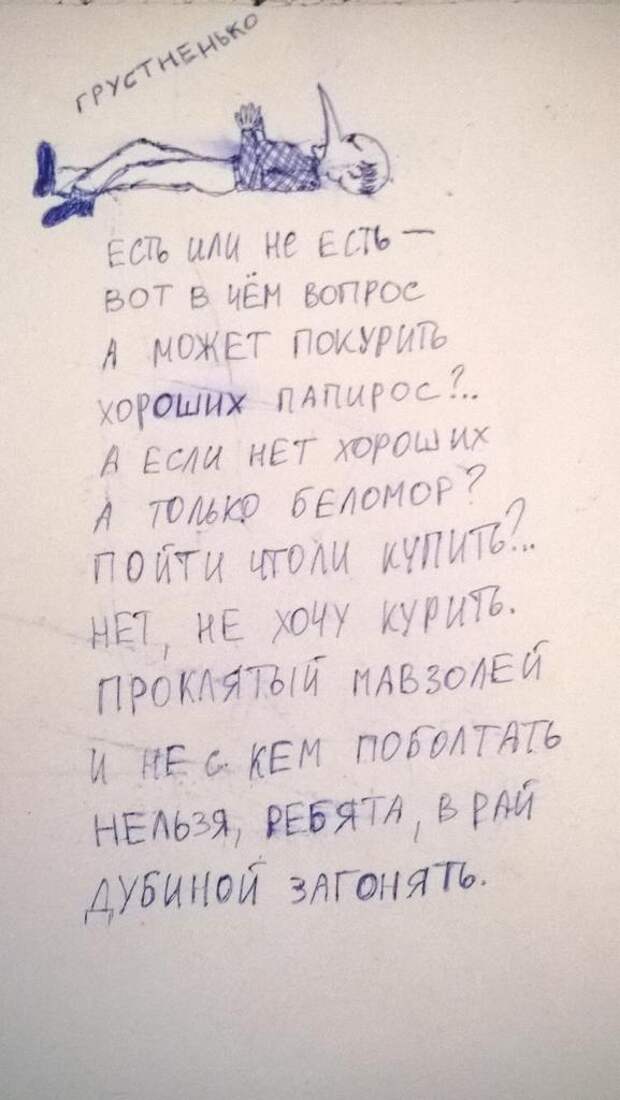 ГРУСТНЕНЬКО
ЕСТЬ ИЛИ НЕ ЕСТЬ —
ВОТ В ЧЁМ ВОПРОС
А МОЖЕТ ПОКУРИТЬ
ХОРОШИХ ПАПИРОС?..
А ЕСЛИ НЕТ ХОРОШИХ
А ТОЛЬКО БЕЛОМОР?
ПОЙТИ ЧТОЛИ КУПИТЬ?..
НЕТ, НЕ ХОЧУ КУРИТЬ.
ПРОКЛЯТЫЙ МАВЗОЛЕЙ
И НЕ С КЕМ ПОБОЛТАТЬ
НЕЛЬЗЯ, РЕБЯТА, В РАЙ
ДУБИНОЙ ЗАГОНЯТЬ.